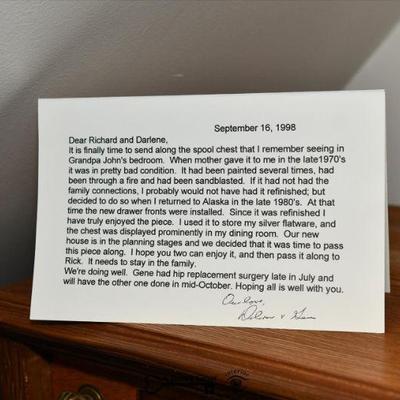 September 16, 1998
Dear Richard and Darlene,
It is finally time to send along the spool chest that I remember seeing in
Grandpa John's bedroom. When mother gave it to me in the late1970's
it was in pretty bad condition. It had been painted several times, had
been through a fire and had been sandblasted. If it had not had the
family connections, I probably would not have had it refinished; but
decided to do so when I returned to Alaska in the late 1980's. At that
time the new drawer fronts were installed. Since it was refinished I
have truly enjoyed the piece. I used it to store my silver flatware, and
the chest was displayed prominently in my dining room. Our new
house is in the planning stages and we decided that it was time to pass
this piece along. I hope you two can enjoy it, and then pass it along to
Rick. It needs to stay in the family.
We're doing well. Gene had hip replacement surgery late in July and
will have the other one done in mid-October. Hoping all is well with you.
Our love,